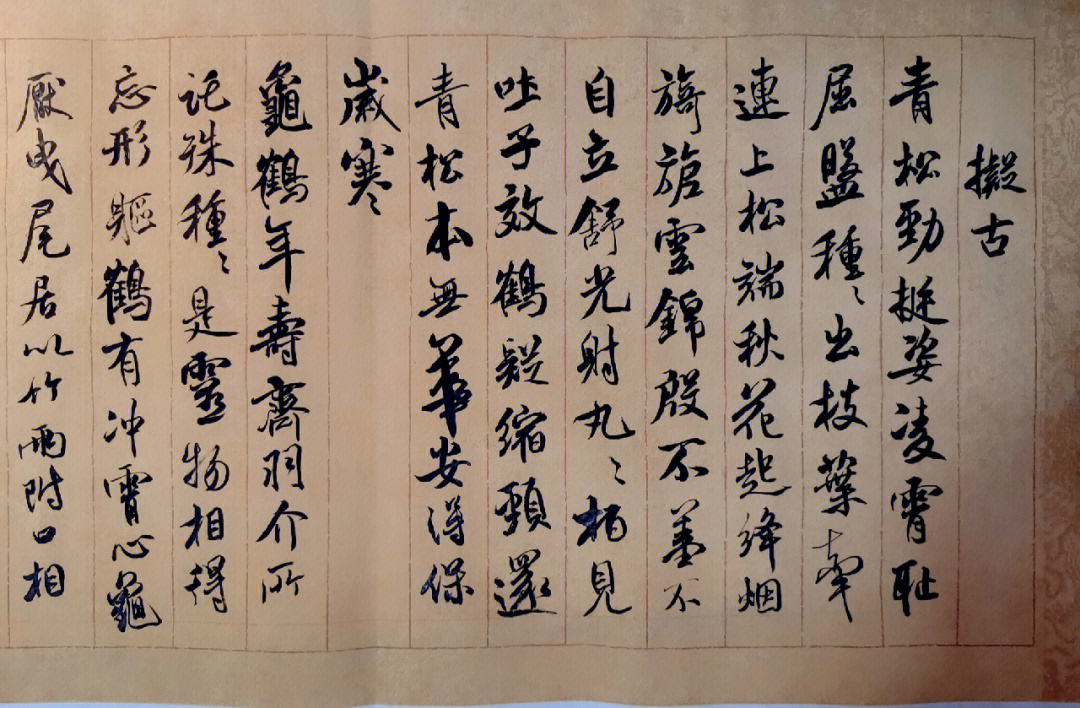 擬古
青松勁挺姿凌霄耻
屈盤種〻出枝葉牽
連上松端秋花起絳烟
旖旎雲錦殷不羞不
自立舒光射丸〻柏見
吐子效鶴疑縮頸還
青松本無華安得保
歲寒〻
龜鶴年壽齊羽介所
託殊種〻是靈物相得
忘形軀鶴有冲霄心龜
厭曳尾居以竹兩附口相